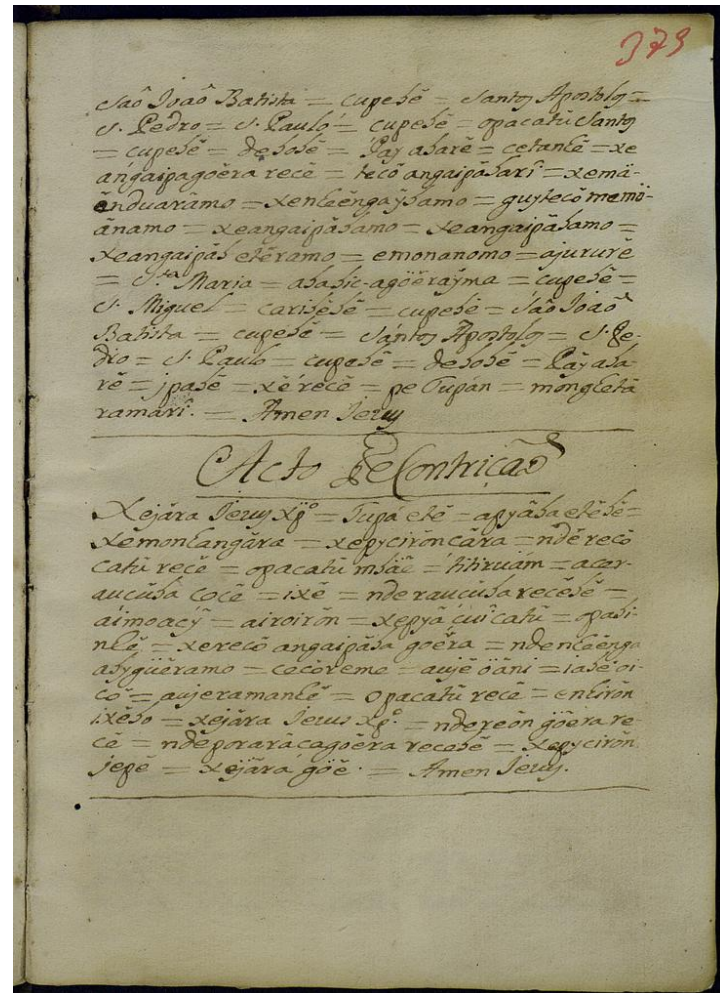 379
Saõ Joaõ Batista = cupebê = Santos Apostolos =
S. Pedro = S. Paulo = cupebê = opacatû Santos
= cupebê = debobê = Pay abarê = cetanbê = xe
angaipagoêra recê = tecô angaipâbari = xemã-
ênduarâmo = xenheêngaÿbamo = guytecô memõ-
ânamo = xeangaipâbamo = xeangaipâbamo =
xeangaipâb etêramo = emonanomo = ajururê
= S.ta Maria = abahic-agöêraÿma = cupebê =
S. Miguel = caribêbê = cupebê = Saõ Joaõ
Batista = cupebê = Sántos Apostolos = S. Pe-
dro = S. Paulo = cupebê = debobê = Pãy aba-
rê = jpabê = xê recê = pe Tupan = mongêtâ
ramari. = Amen Jesus
Acto De Contriçaõ
Xejâra Jesus Xp.º = Tupá etê = apyâba etêbê =
xêmonhangâra = xepycirõncâra = ndê recô
catû recê = opacatû mbâê = titiruám = acer-
aucûba cocê = ixê = nderaucûba recêbê =
aimoacÿ = airoirõn = xepyâ cui catû = opabi-
nhê = xerecô angaipâba goêra = ndenheênga
abygüêramo = cecôreme = aujê öâni = iabê oi-
cô = aujeramanhê = opacatû recê = enhirõn
ixêbo = xejâra Jesus Xp.º = ndereõn göêra re-
cê = ndêporarâcagoêra recebê = xepycirõn
jepê = xejâra göê. = Amen Jesus.